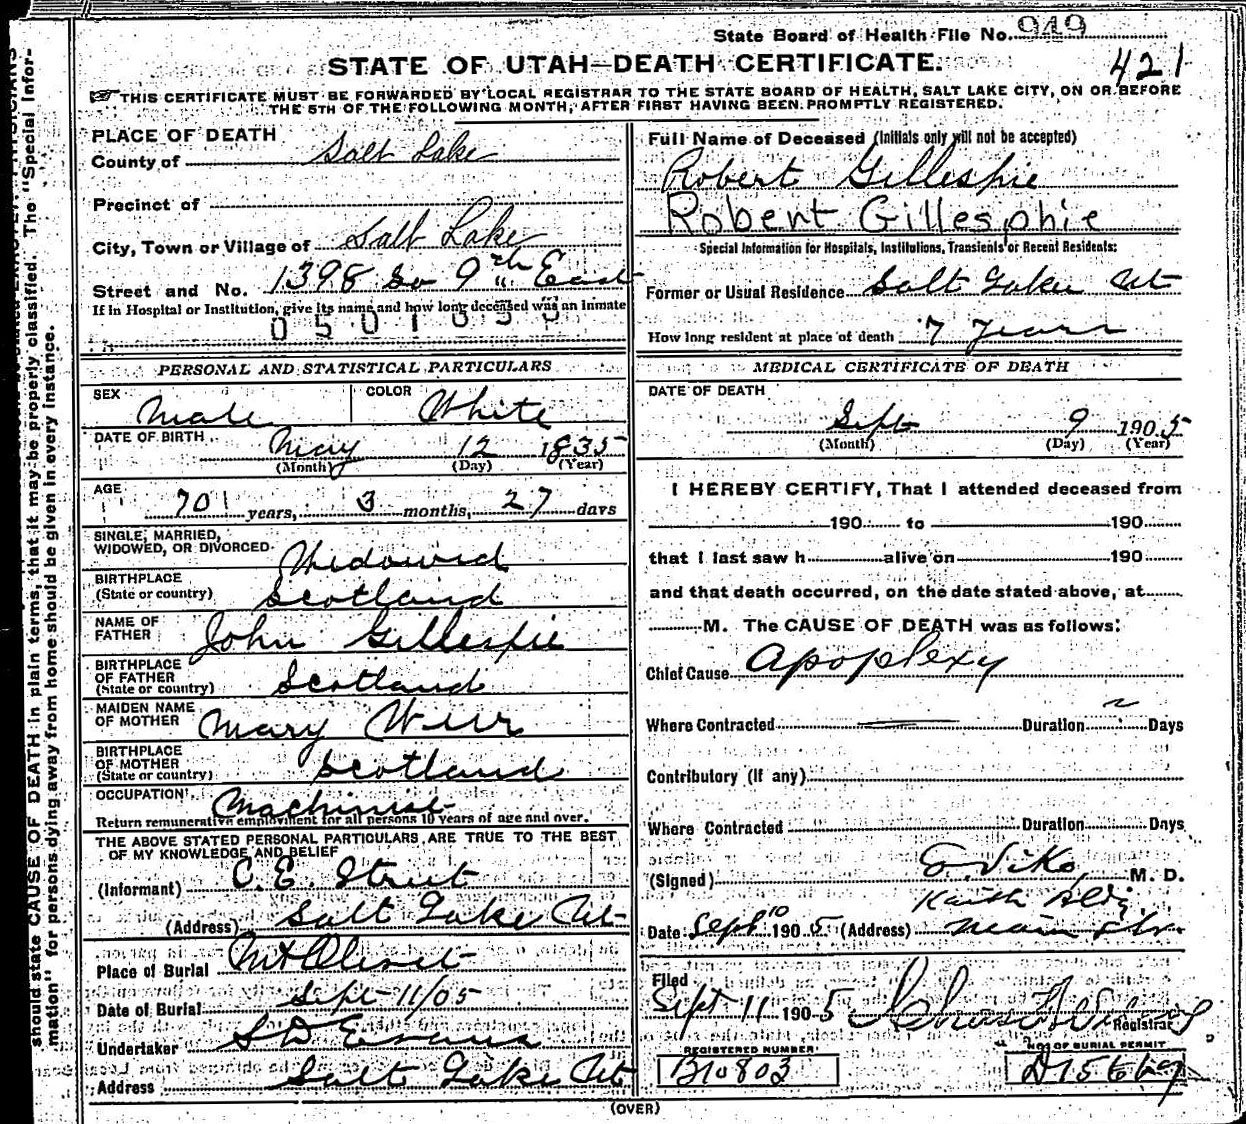 State Board of Health File No. 949
421
STATE OF UTAH—DEATH CERTIFICATE.
THIS CERTIFICATE MUST BE FORWARDED BY LOCAL REGISTRAR TO THE STATE BOARD OF HEALTH, SALT LAKE CITY, ON OR BEFORE
THE 5TH OF THE FOLLOWING MONTH, AFTER FIRST HAVING BEEN PROMPTLY REGISTERED.
PLACE OF DEATH
County of Salt Lake
Precinct of
City, Town or Village of Salt Lake
Street and No. 1398 So 9th East
If in Hospital or Institution, give its name and how long deceased was an inmate
0501693
Full Name of Deceased (Initials only will not be accepted)
Robert Gillespie
Robert Gillesphie
Special Information for Hospitals, Institutions, Transients or Recent Residents:
Former or Usual Residence Salt Lake Ut
How long resident at place of death 7 years
PERSONAL AND STATISTICAL PARTICULARS
SEX Male COLOR White
DATE OF BIRTH May 12 1835
(Month) (Day) (Year)
AGE
70 years, 3 months, 27 days
SINGLE, MARRIED,
WIDOWED, OR DIVORCED Widowed
BIRTHPLACE
(State or country) Scotland
NAME OF
FATHER John Gillespie
BIRTHPLACE
OF FATHER
(State or country) Scotland
MAIDEN NAME
OF MOTHER Mary Weir
BIRTHPLACE
OF MOTHER
(State or country) Scotland
OCCUPATION Machinist
Return remunerative employment for all persons 10 years of age and over.
THE ABOVE STATED PERSONAL PARTICULARS ARE TRUE TO THE BEST
OF MY KNOWLEDGE AND BELIEF
(Informant) C. E. Street
(Address) Salt Lake Ut
Place of Burial Mt Olivet
Date of Burial Sept 11/05
Undertaker S D Evans
Address Salt Lake Ut
MEDICAL CERTIFICATE OF DEATH
DATE OF DEATH
Sept 9 1905
(Month) (Day) (Year)
I HEREBY CERTIFY, That I attended deceased from
190 to 190
that I last saw h alive on 190
and that death occurred, on the date stated above, at
M. The CAUSE OF DEATH was as follows:
Chief Cause Apoplexy
Where Contracted Duration Days
Contributory (If any)
Where Contracted Duration Days
(Signed) M. D.
Keith Bldg
Date Sept 10 1905 (Address) Main Str.
Filed
Sept 11 1905
Registrar
REGISTERED NUMBER
B10803
NO. OF BURIAL PERMIT
(OVER)
should state CAUSE OF DEATH in plain terms, that it may be properly classified. The "Special Infor-
mation" for persons dying away from home should be given in every instance.